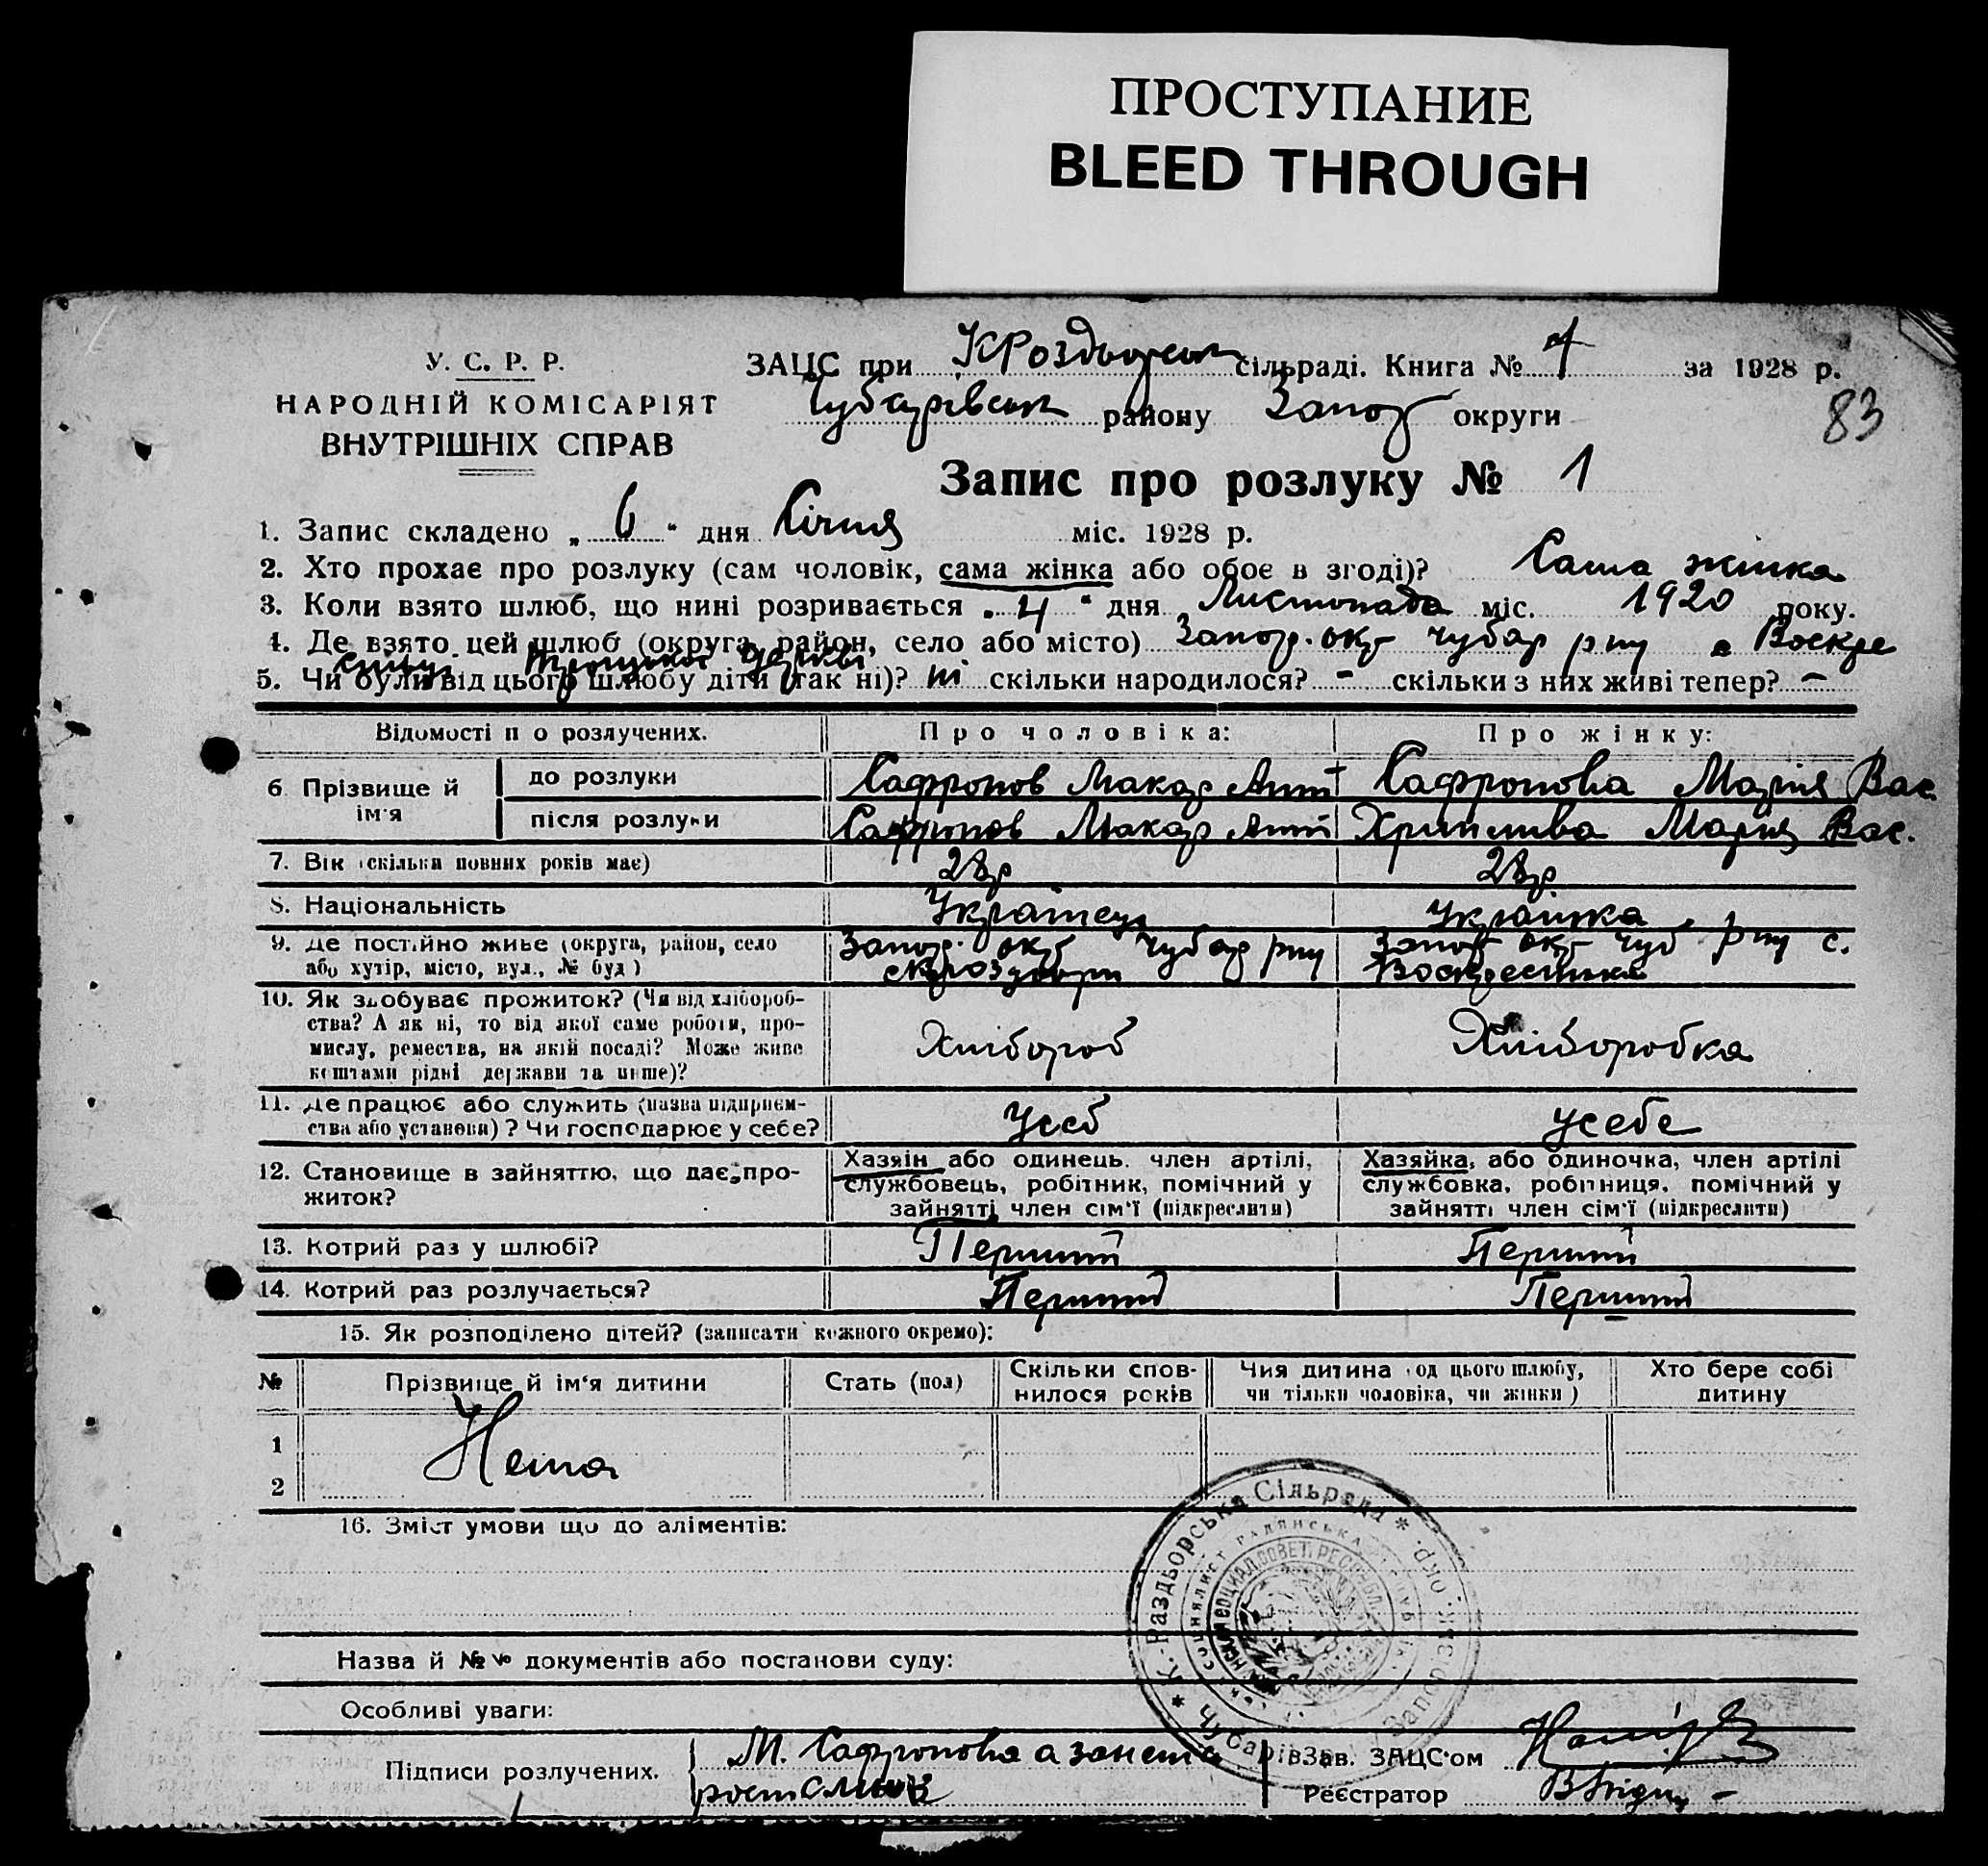 ПРОСТУПАНИЕ
BLEED THROUGH
У. С. Р. Р.
НАРОДНІЙ КОМІСАРІЯТ
ВНУТРІШНІХ СПРАВ
ЗАЦС при К Роздорськ сільраді. Книга № за 1928 р.
Чубарівськ району Запор округи
83
Запис про розлуку № 1
1. Запис складено „ 6 “ дня Січня міс. 1928 р.
2. Хто прохає про розлуку (сам чоловік, сама жінка або обоє в згоді)? Сама жінка
3. Коли взято шлюб, що нині розривається „ 4 “ дня Листопада міс. 1920 року.
4. Де взято цей шлюб (округа, район, село або місто) Запор. окр Чубар рну с Воскре
сенці Троицької церкві
5. Чи були від цього шлюбу діти (так ні)? ні скільки народилося? - скільки з них живі тепер? -
Відомості п о розлучених. Про чоловіка: Про жінку:
6 Прізвище й ім'я до розлуки Сафронов Макар Ант Сафронова Мария Вас
після розлуки Сафронов Макар Ант Мария Вас.
7. Вік (скільки повних років має) 28р 28р.
8. Національність Українець Українка
9. Де постійно живе (округа, район, село Запор. окр Чубар рну Запор окр Чуб рну с.
або хутір, місто, вул., № буд ) Воскресенка
10. Як здобуває прожиток? (Чи від хлібороб-
ства? А як ні, то від якої саме роботи, про-
мислу, ремества, на якій посаді? Може живе
коштами рідні держави та инше)? Хлібороб Хліборобка
11. Де працює або служить (назва підприєм-
ства або установи) ? Чи господарює у себе? Усеб Усебе
12. Становище в зайняттю, що дає про-
житок?
Хазяін або одинець. член артілі,
службовець, робітник, помічний у
зайнятті член сім'ї (підкреслити)
Хазяйка, або одиночка, член артілі
службовка, робітниця, помічний у
зайнятті член сім'ї (підкреслити)
13. Котрий раз у шлюбі? Перший Перший
14. Котрий раз розлучається? Перший Перший
15. Як розподілено дітей? (записати кожного окремо):
№ Прізвище й ім'я дитини Стать (пол) Скільки спов-
нилося років Чия дитина (од цього шлюбу,
чи тільки чоловіка, чи жінки ) Хто бере собі
дитину
1 Нема
2
16. Зміст умови що до аліментів:
* К.-Раздьорська Сільрада * Чубарівс Запорізьк. окр.
Назва й №№ документів або постанови суду:
Особливі уваги:
Підписи розлучених. М. Сафронова а
Зав. ЗАЦС'ом
Реєстратор